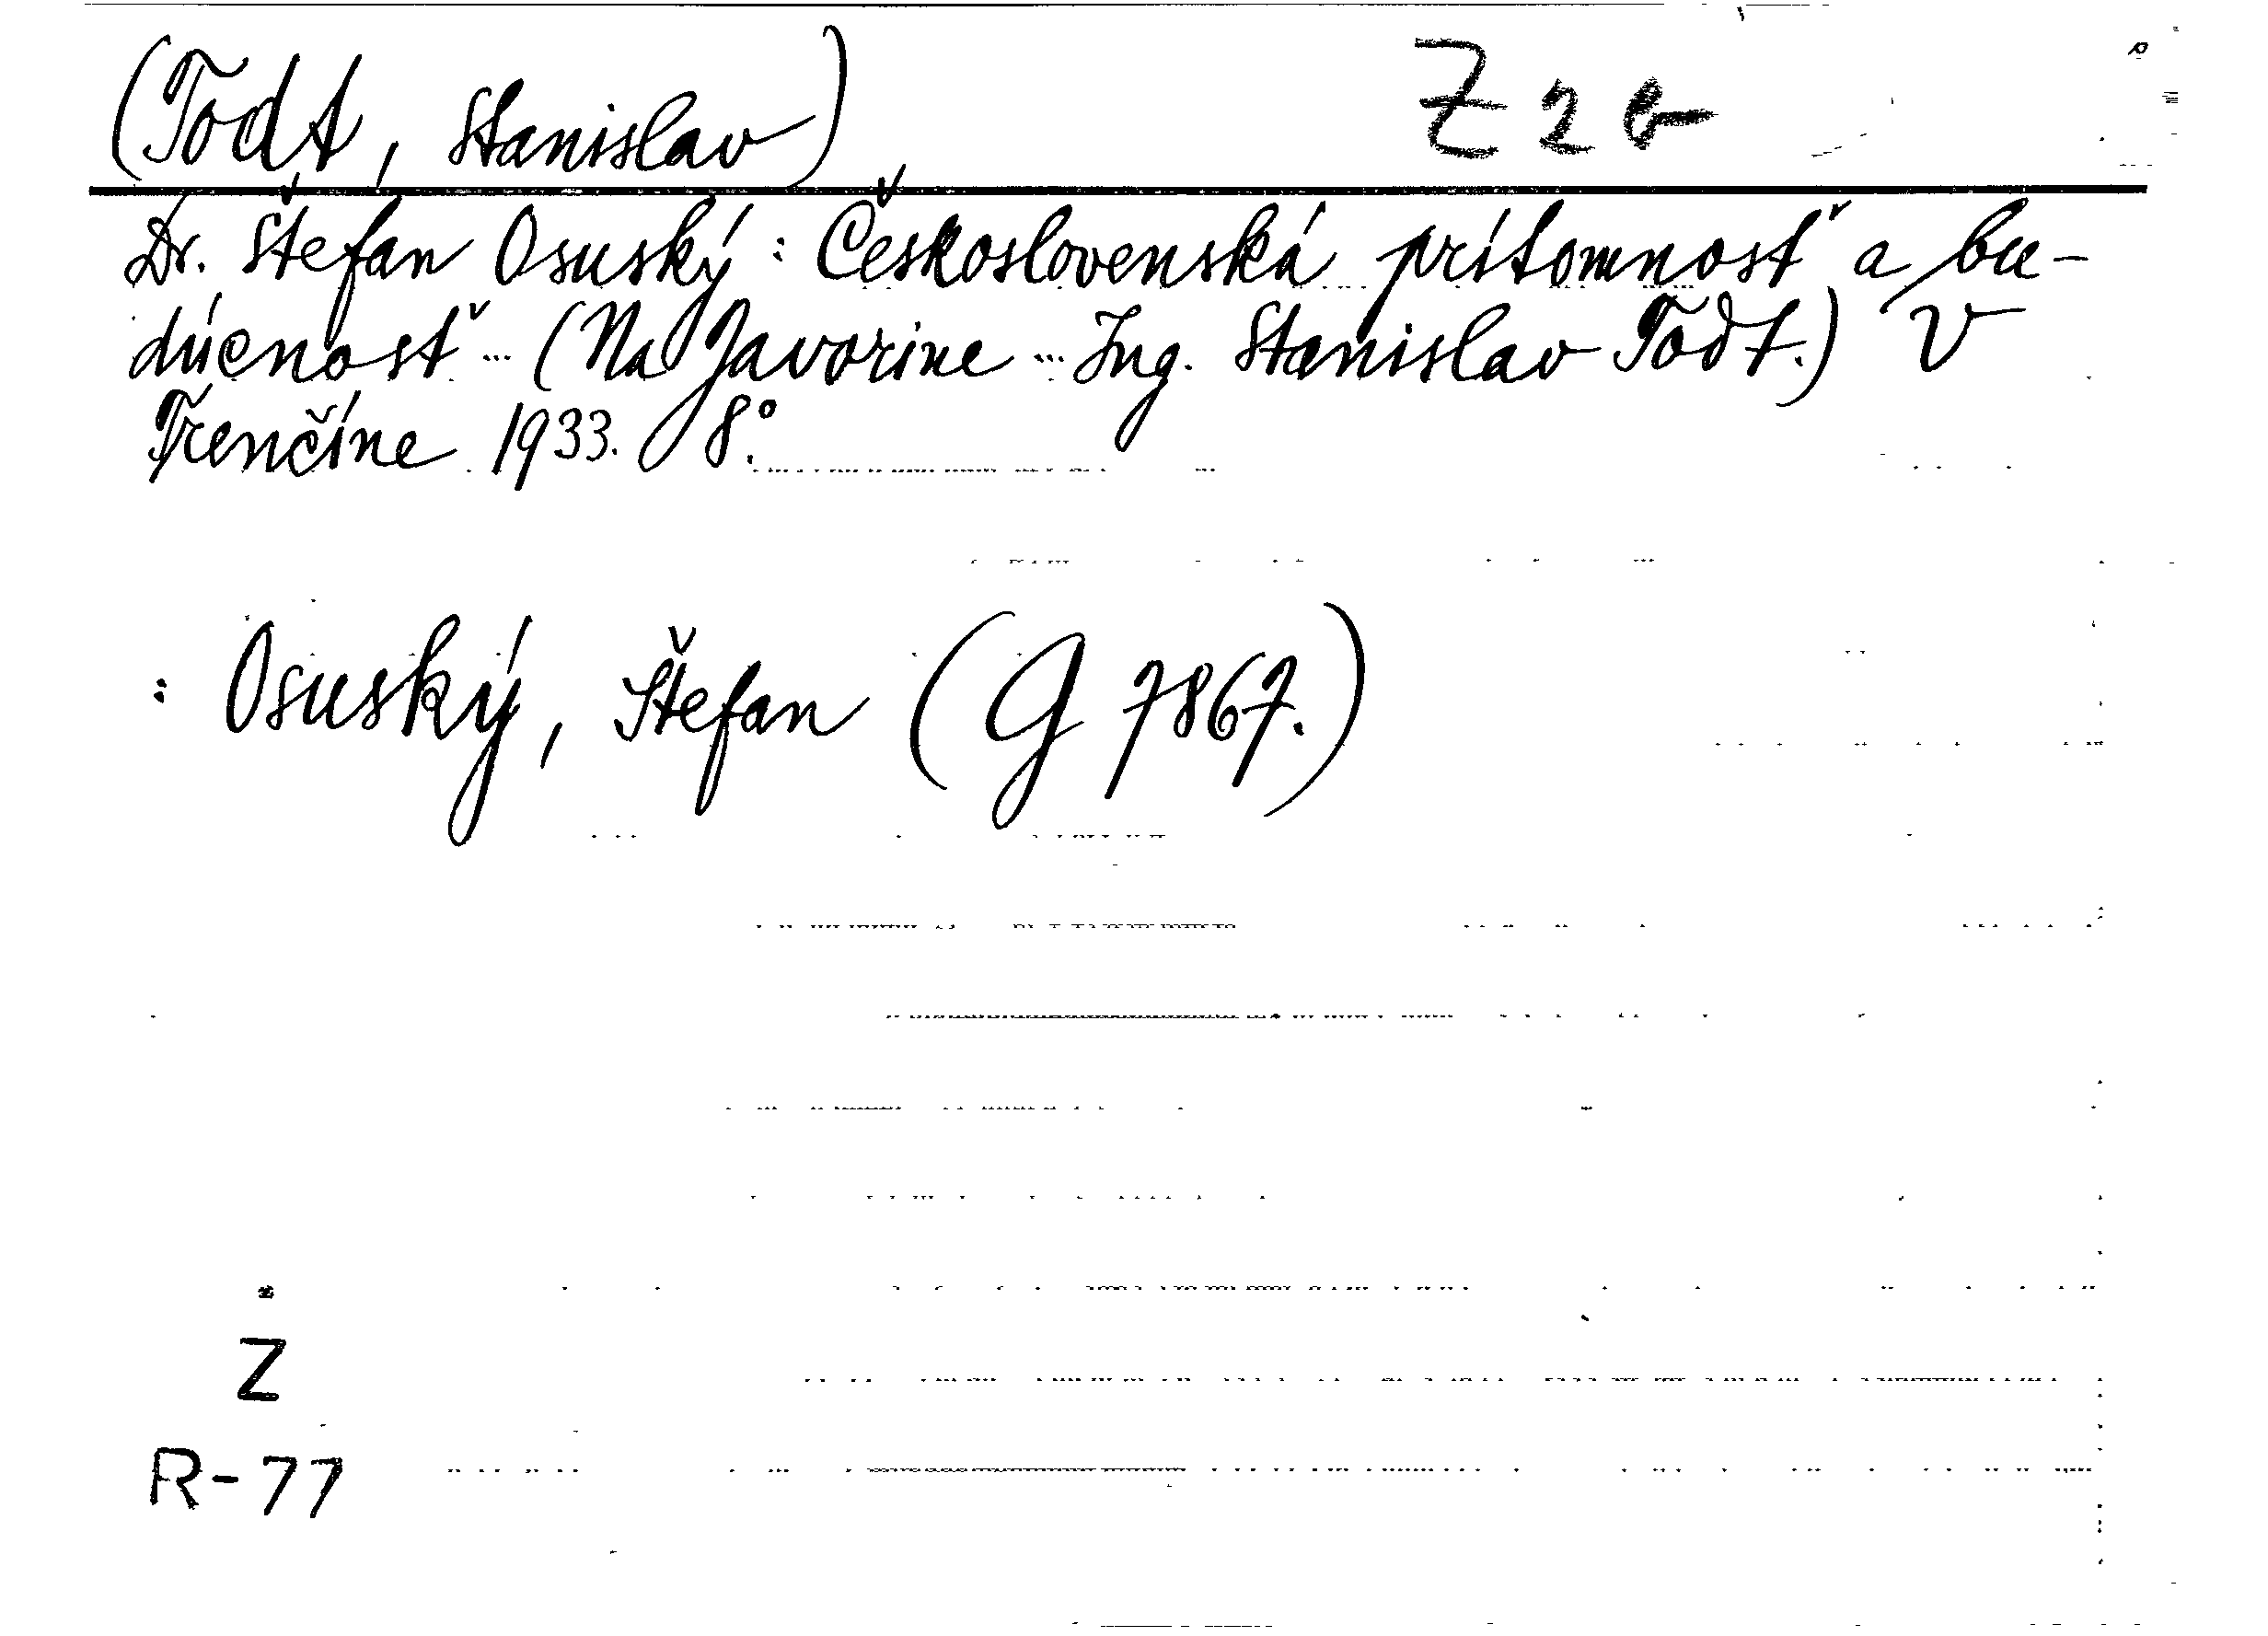 (Todt, Stanislav) Z 2 b
Dr. Štefan Osuský: Československá prítomnosť a bu-
dúcnosť ... (Na Javorine ... Ing. Stanislav Todt.) V
Trenčíne 1933. 8°.
: Osuský, Štefan (G 7867.)
Z
R-77